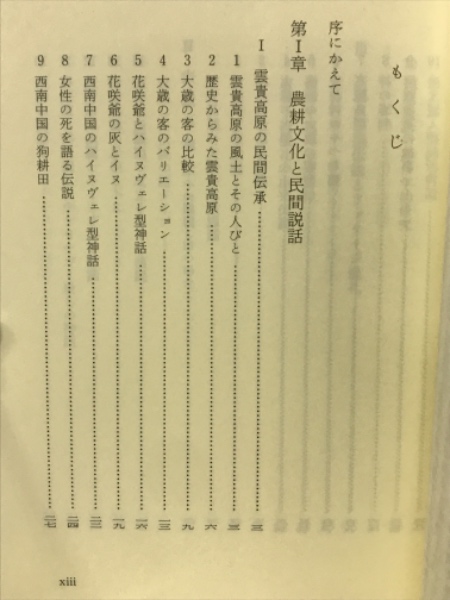 もくじ
序にかえて
第Ⅰ章 農耕文化と民間説話
Ⅰ 雲貴高原の民間伝承 三
1 雲貴高原の風土とその人びと 三
2 歴史からみた雲貴高原 六
3 大歳の客の比較 九
4 大歳の客のバリエーション 一三
5 花咲爺とハイヌヴェレ型神話 一六
6 花咲爺の灰とイヌ 一九
7 西南中国のハイヌヴェレ型神話 二三
8 女性の死を語る伝説 二四
9 西南中国の狗耕田 二七
xiii